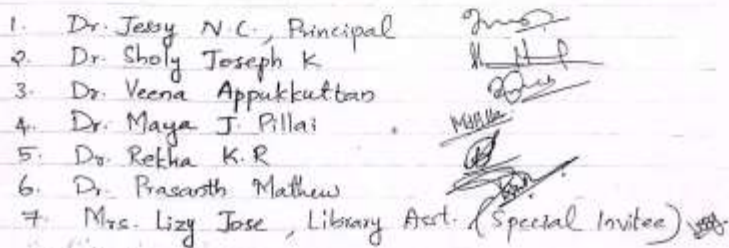 1. Dr. Jessy N.C., Principal
2. Dr. Sholy Joseph K
3. Dr. Veena Appukkuttan
4. Dr. Maya J. Pillai
5. Dr. Rekha K.R
6. Dr. Prasanth Mathew
7. Mrs. Lizy Jose, Library Asst. (Special Invitee)